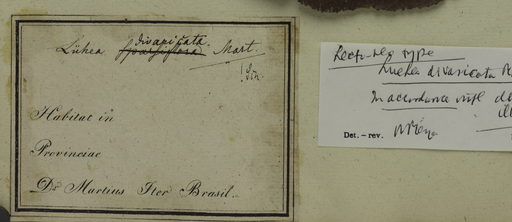 divaricata
Lühea sparsiflora Mart.
Habitat in
Provinciae
Dr Martius Iter Brasil.
Lecto type
Luehea divaricata
In accordance with
Det. – rev.